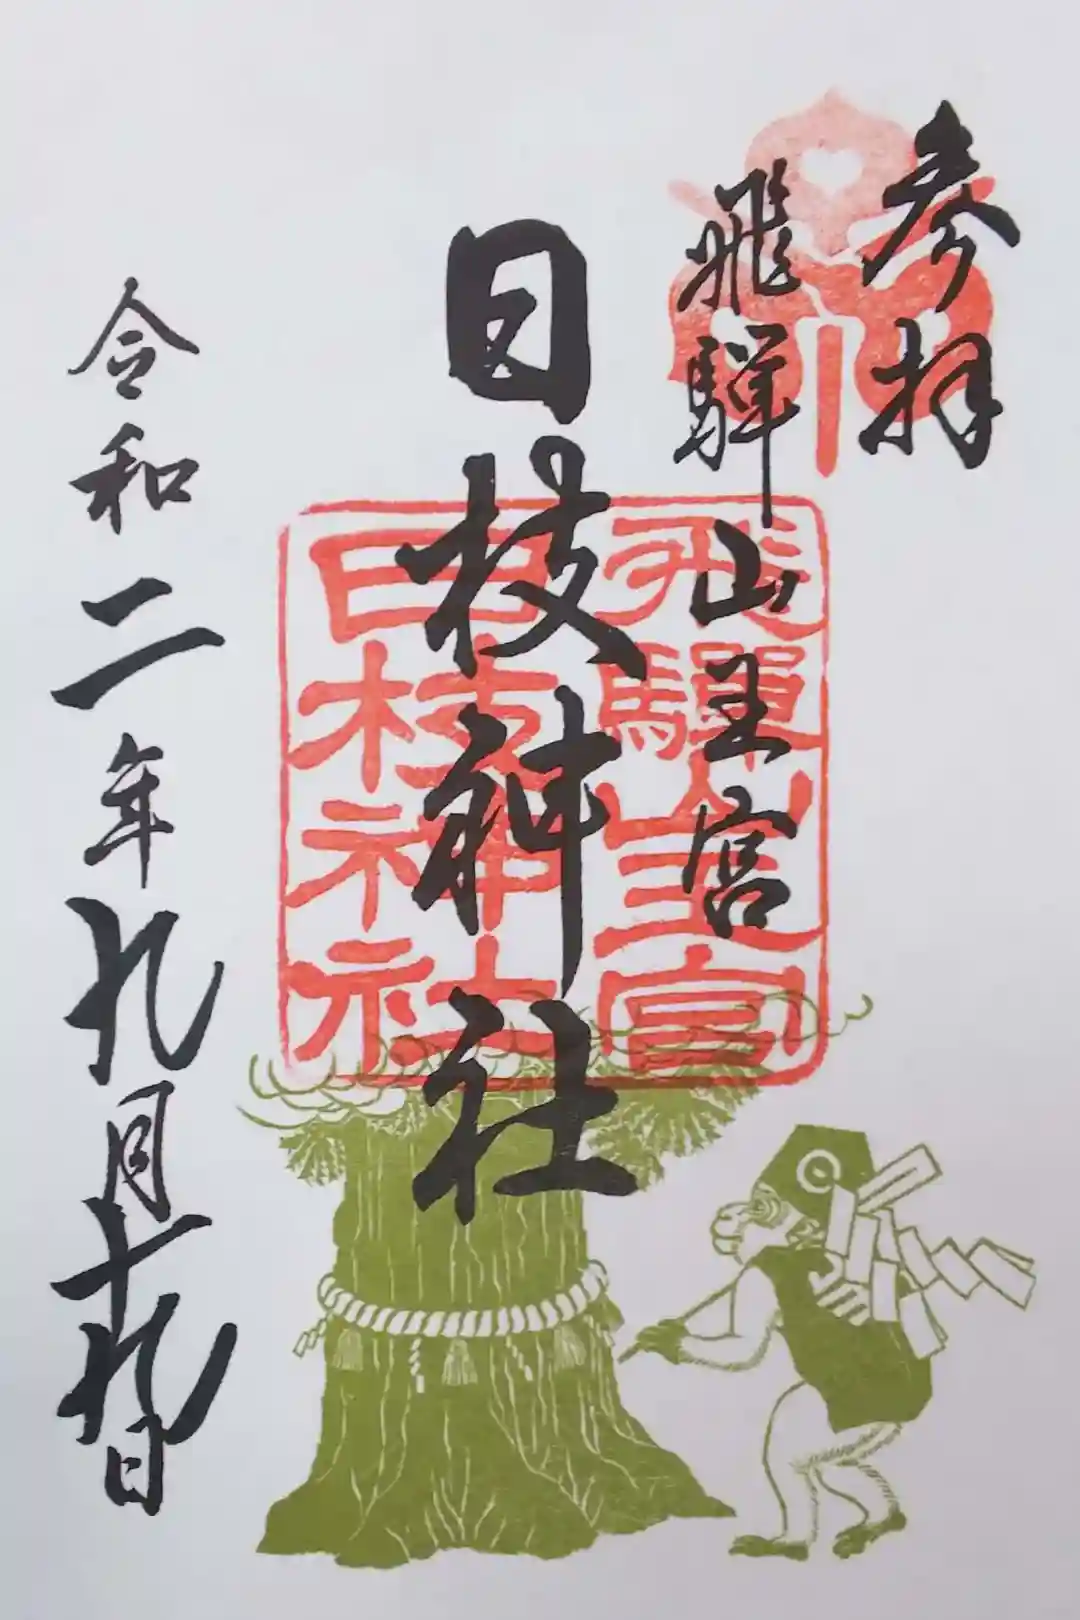 参拝
飛騨山王宮
日枝神社
令和二年九月十九日
飛驒山王宮
日枝神社